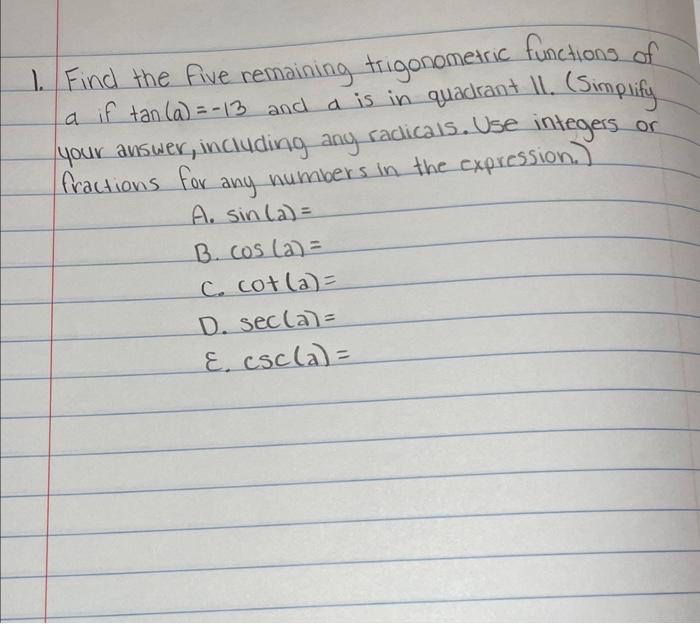 1. Find the five remaining trigonometric functions of
a if tan(a)=-13 and a is in quadrant II. (Simplify
your answer, including any radicals. Use integers or
fractions for any numbers in the expression.)
A. sin(a)=
B. cos(a)=
C. cot(a)=
D. sec(a)=
E. csc(a)=